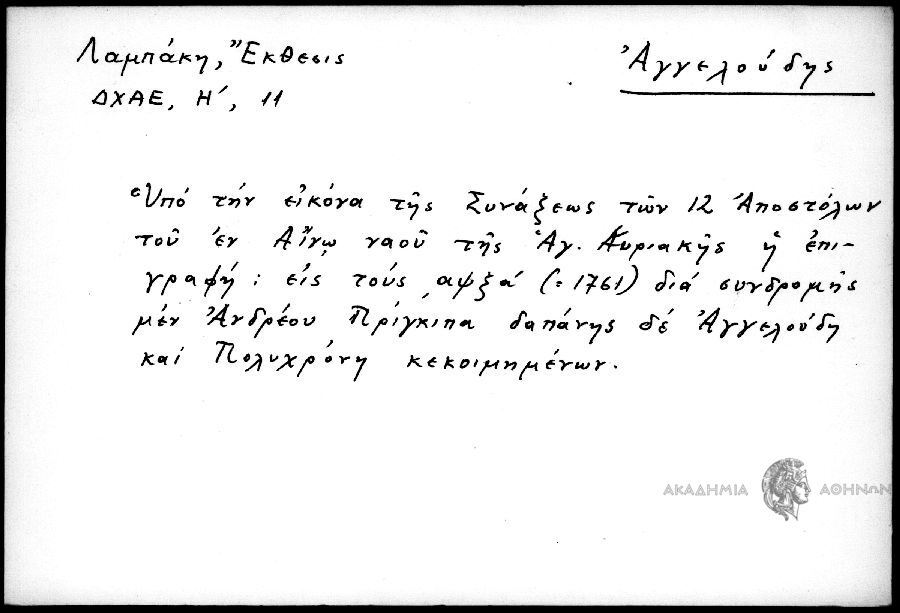 Λαμπάκη, Ἔκθεσις
Ἀγγελούδης
ΔΧΑΕ, Η΄, 11
Ὑπό τήν εἰκόνα τῆς Συνάξεως τῶν 12 Ἀποστόλων
τοῦ ἐν Αἴνῳ ναοῦ τῆς Ἁγ. Κυριακῆς ἡ ἐπι-
γραφή: εἰς τούς ͵αψξά (=1761) διά συνδρομῆς
μέν Ἀνδρέου Πρίγκιπα δαπάνης δέ Ἀγγελούδη
καί Πολυχρόνη κεκοιμημένων.
ΑΚΑΔΗΜΙΑ ΑΘΗΝΩΝ